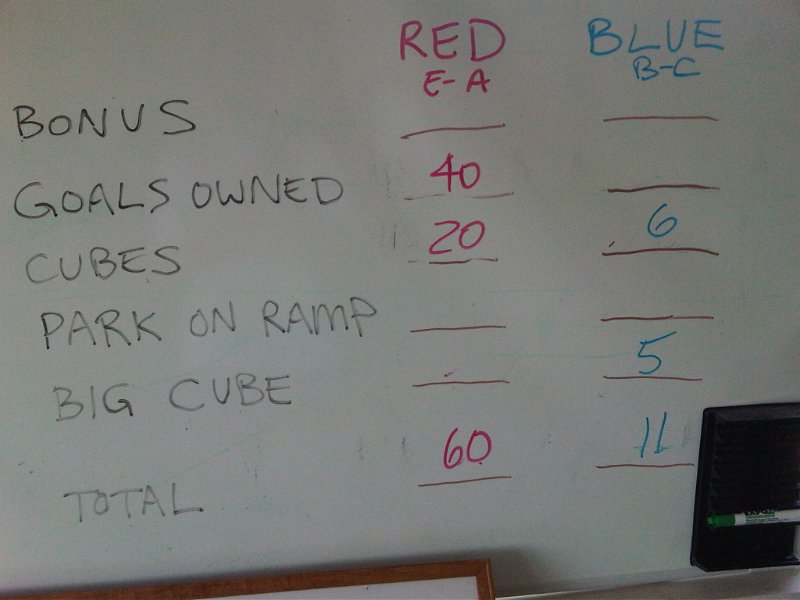 RED BLUE
E-A B-C
BONUS
GOALS OWNED 40
CUBES 20 6
PARK ON RAMP
BIG CUBE 5
TOTAL 60 11
EXPO